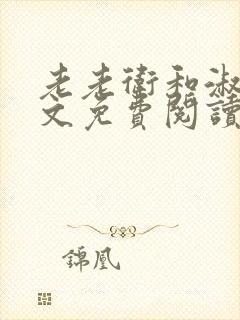 老老衛和淑
文免費閱讀
錦凰